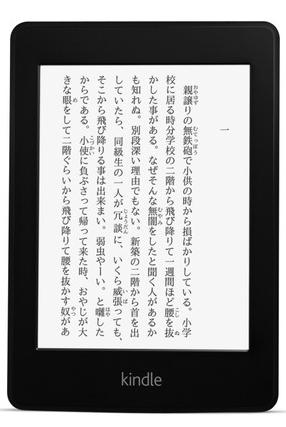 一
親譲りの無鉄砲で小供の時から損ばかりしている。小学
校に居る時分学校の二階から飛び降りて一週間ほど腰を抜
かした事がある。なぜそんな無闇をしたと聞く人があるか
も知れぬ。別段深い理由でもない。新築の二階から首を出
していたら、同級生の一人が冗談に、いくら威張っても、
そこから飛び降りる事は出来まい。弱虫やーい。と囃した
からである。小使に負ぶさって帰って来た時、おやじが大
きな眼をして二階ぐらいから飛び降りて腰を抜かす奴があ
kindle